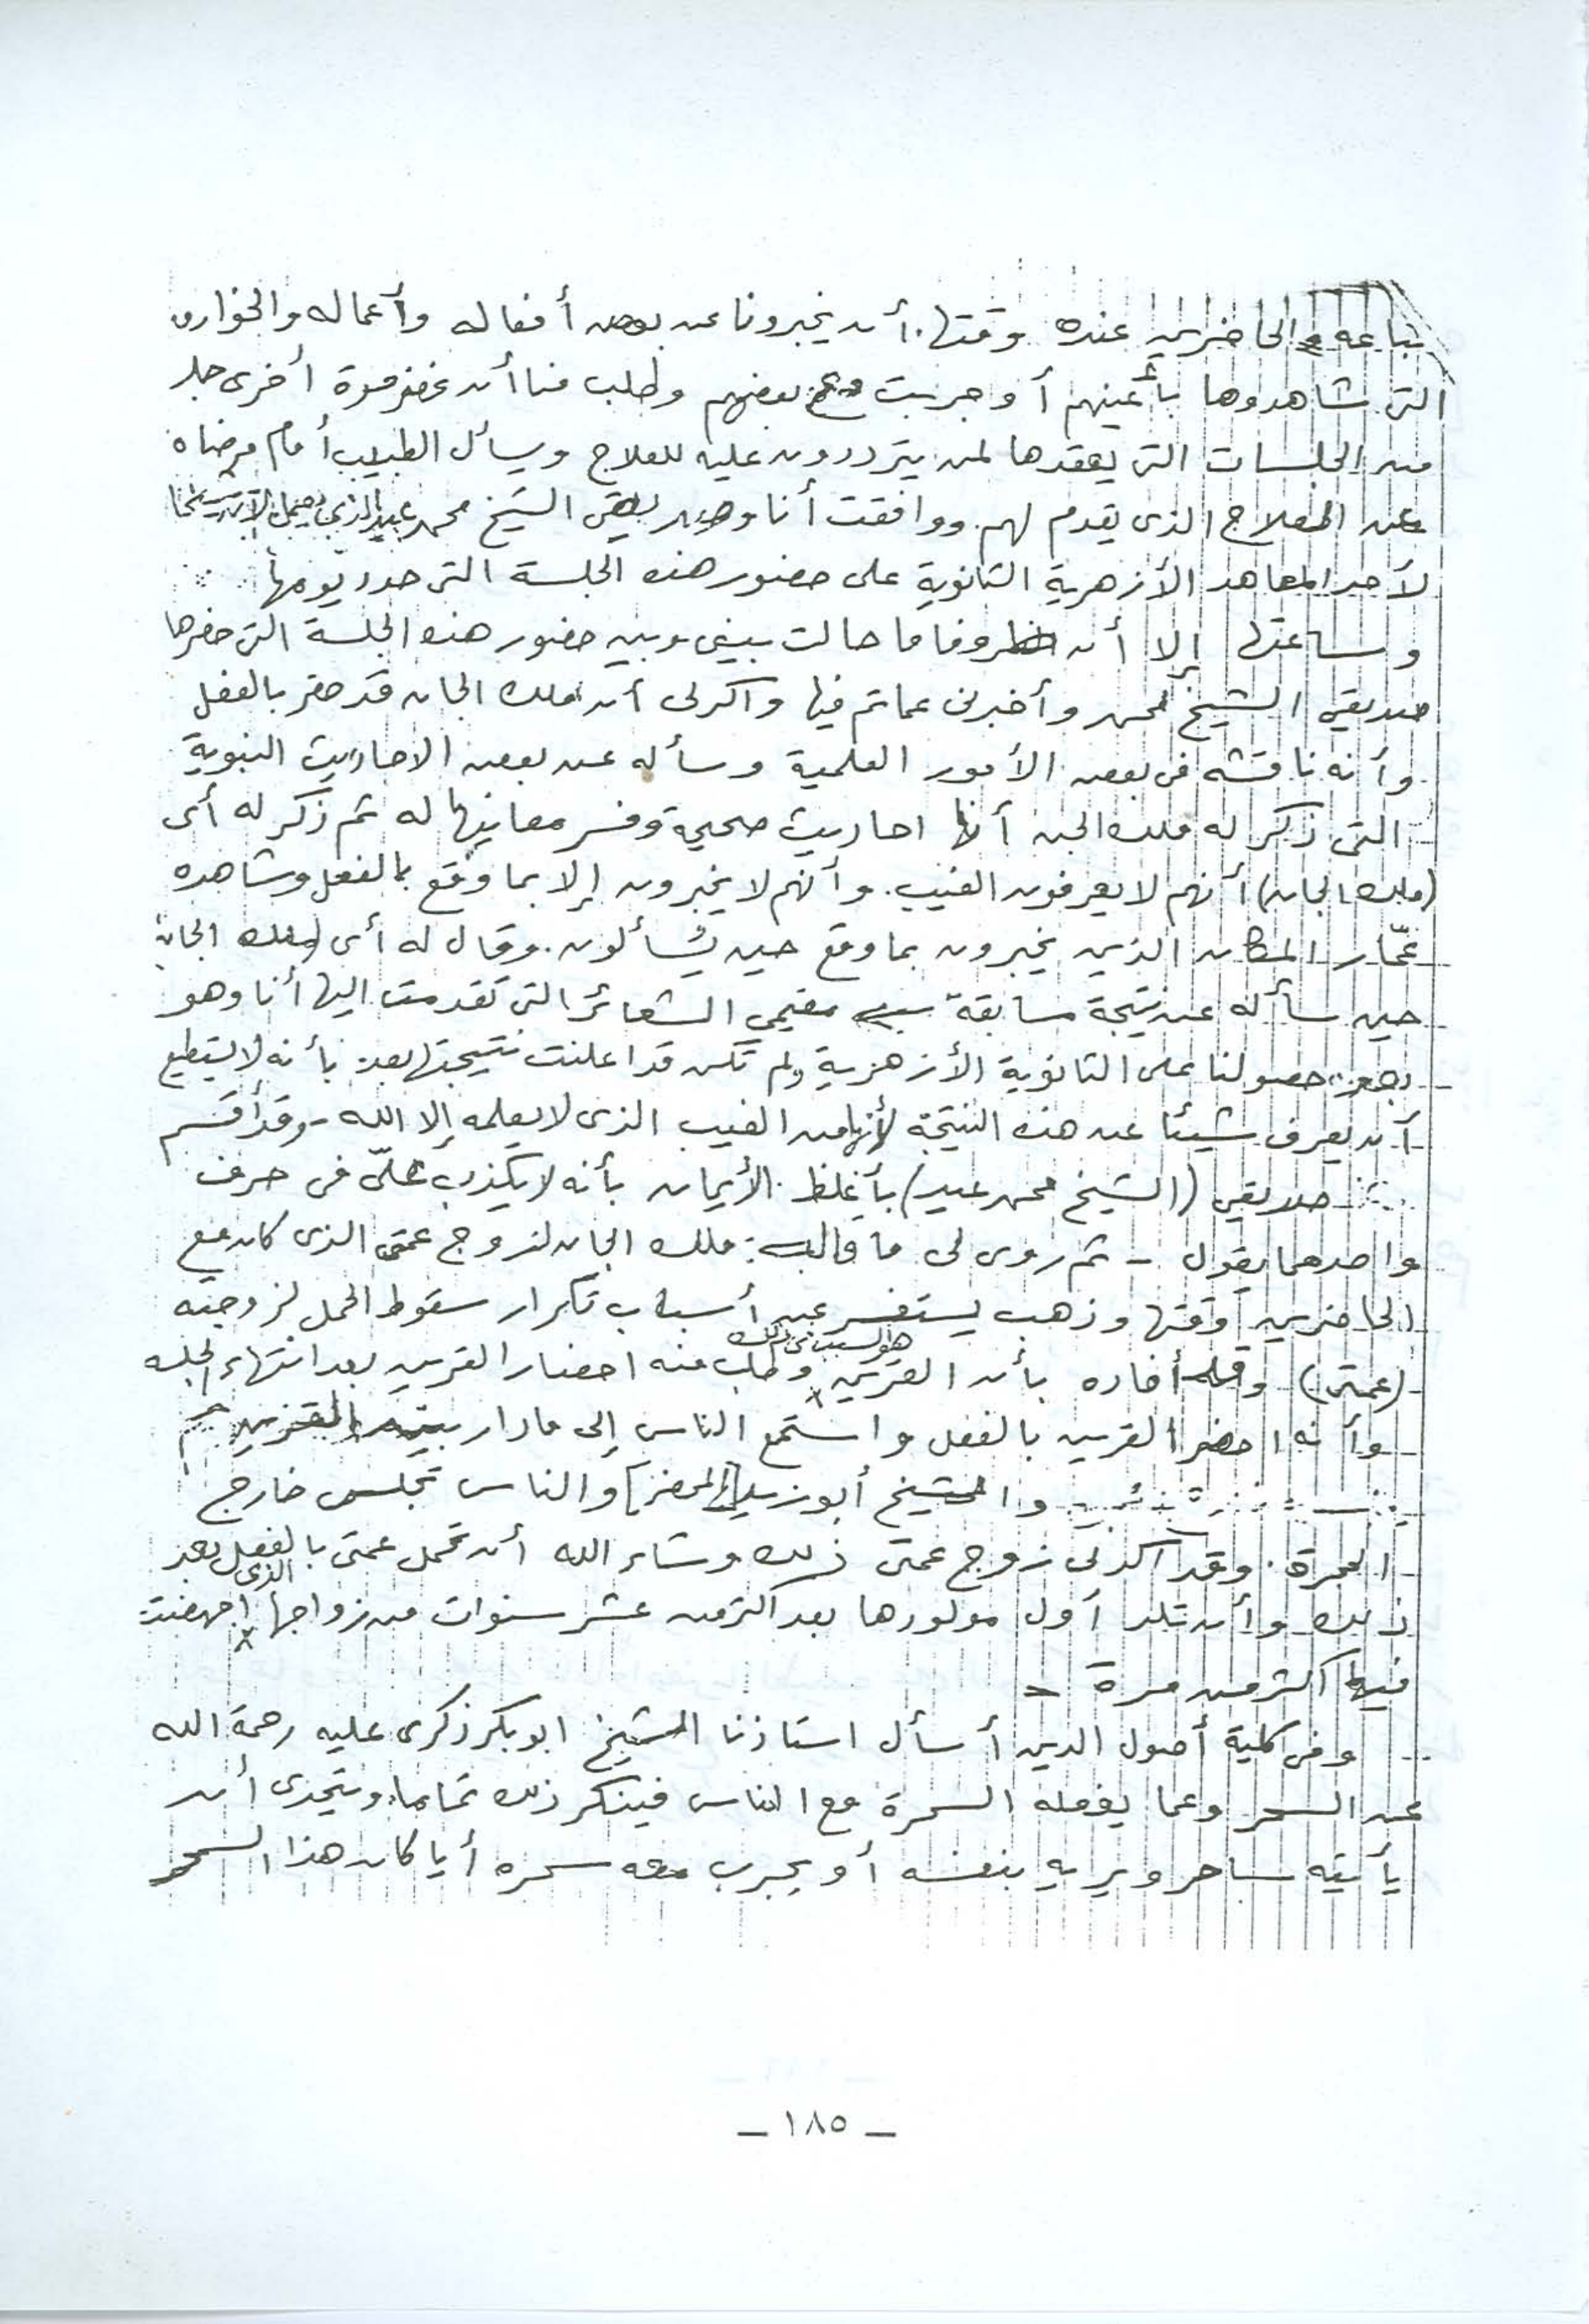 والحاضرين عنده وقتها. أن يخبرونا عن بعض أفعاله وأعماله والخوارق
التى شاهدوها بأعينهم أو جربت مع بعضهم وطلب منا أن نحضر مرة أخرى
من الجلسات التى يعقدها لمن يترددون عليه للعلاج ويسأل الطبيب أمام مرضاه
عن العلاج الذى يقدم لهم. ووافقت أنا وصديقى الشيخ محمد عيد الذى يعمل الآن شيخا
لأحد المعاهد الأزهرية الثانوية على حضور هذه الجلسة التى حدد يومها
وساعتها إلا أن ظروفا ما حالت بينى وبين حضور هذه الجلسة التى حضرها
صديقى الشيخ محمد وأخبرنى عما تم فيها وأكد لى أن ملك الجان قد حضر بالفعل
وأنه ناقشه فى بعض الأمور العلمية وسأله عن بعض الاحاديث النبوية
التى ذكر له ملك الجن أنها احاديث صحيحة وفسر معانيها له ثم ذكر له أى
(ملك الجان) أنهم لا يعرفون الغيب. وأنهم لا يخبرون إلا بما وقع بالفعل وشاهده
عمّار المكان الذين يخبرون بما وقع حين يُسألون. وقال له أى (ملك الجان)
حين سأله عن نتيجة مسابقة مقيمي الشعائر التى تقدمت اليها أنا وهو
بعد حصولنا على الثانوية الأزهرية ولم تكن قد اعلنت نتيجتها بعد بأنه لا يستطيع
أن يعرف شيئا عن هذه النتيجة لأنها من الغيب الذى لا يعلمه إلا الله - وقد أقسم
صديقي (الشيخ محمد عيد) بأغلظ الأيمان بأنه لا يكذب علىّ فى حرف
واحد مما يقول - ثم روى لى ما قاله ملك الجان لزوج عمتى الذى كان مع
الحاضرين وقتها وذهب يستفسر عن أسباب تكرار سقوط الحمل لزوجته
(عمتى) أفاده بأن القرين هو السبب فى ذلك وطلب منه احضار القرين بعد انتهاء الجلسة
وأنه احضر القرين بالفعل واستمع الناس إلى ما دار بين القرين
والشيخ أبو زيد [المحضر] والناس تجلس خارج
الحجرة. وقد أكد لى زوج عمتى ذلك وشاء الله أن تحمل عمتى بالفعل بعد
ذلك وأن تلد أول مولودها بعد اكثر من عشر سنوات من زواجها الذى اجهضت
فيها اكثر من مرة -
وفى كلية أصول الدين أسأل استاذنا الشيخ ابو بكر ذكرى عليه رحمة الله
عن السحر وعما يفعله السحرة مع الناس فينكر ذلك تماما. ويتحدى أن
يأتيه ساحر ويريه بنفسه أو يجرب معه سحره أيا كان هذا السحر
- ١٨٥ -